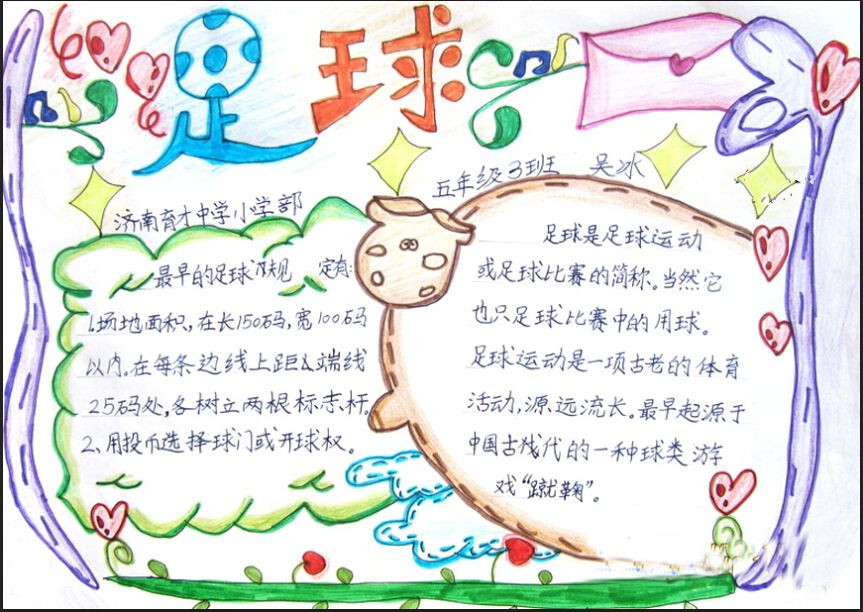 足球
五年级3班 吴冰
济南育才中学小学部
最早的足球 规 定有:
1.场地面积,在长150码,宽100码
以内.在每条边线上距 端线
25码处,各树立两根标志杆.
2、用投币选择球门或开球权。
足球是足球运动
或足球比赛的简称。当然它
也只足球比赛中的用球。
足球运动是一项古老的体育
活动,源远流长。最早起源于
中国古代的一种球类游
戏“蹴鞠”。